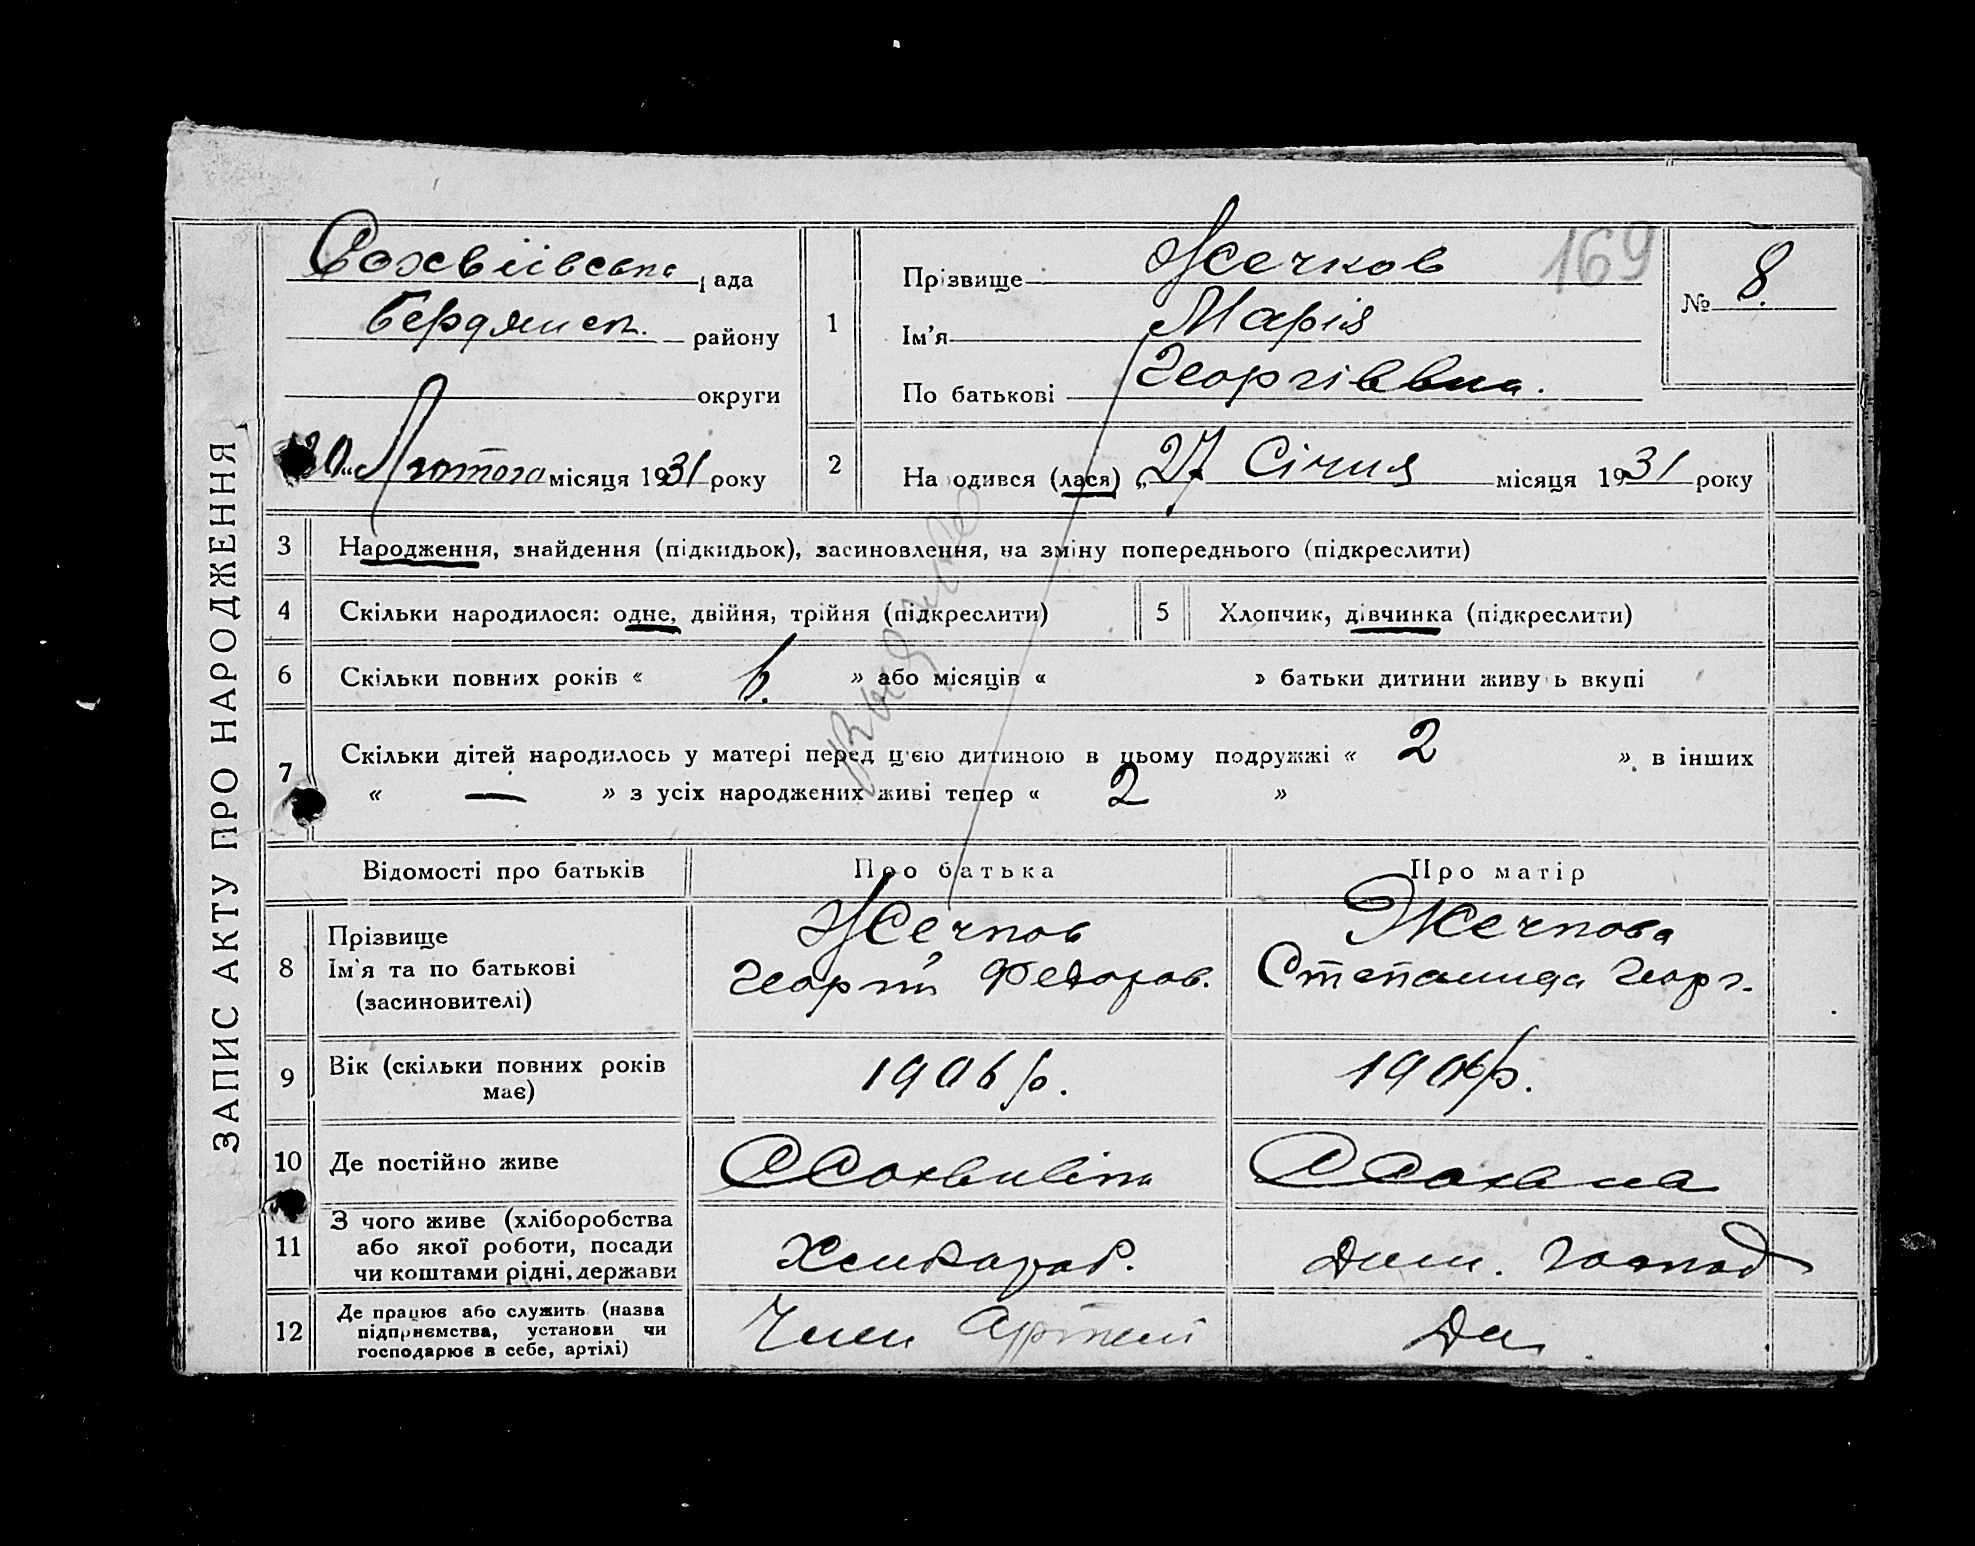 ЗАПИС АКТУ ПРО НАРОДЖЕННЯ
рада
Бердянськ. району
округи
Лютого місяця 1931 року
1
Прізвище Жечков
Ім'я Марія
По батькові Георгіївна.
169
№ 8.
2
Народився (лася) „27 Січня місяця 1931 року
3 Народження, знайдення (підкидьок), засиновлення, на зміну попереднього (підкреслити)
4 Скільки народилося: одне, двійня, трійня (підкреслити)
5 Хлопчик, дівчинка (підкреслити)
6 Скільки повних років « 6. » або місяців « » батьки дитини живуть вкупі
7 Скільки дітей народилось у матері перед цією дитиною в цьому подружжі « 2 » в інших
« — » з усіх народжених живі тепер « 2 »
Відомості про батьків Про батька Про матір
8 Прізвище
Ім'я та по батькові
(засиновителі)
Жечков
Георгій Федоров.
Жечкова
Степанида Георг.
9 Вік (скільки повних років
має)
1906 р.
1906 р.
10 Де постійно живе
11 З чого живе (хліборобства
або якої роботи, посади
чи коштами рідні, держави
Хлибороб.
Дом. господ
12 Де працює або служить (назва
підприємства, установи чи
господарює в себе, артілі)
Член Артели